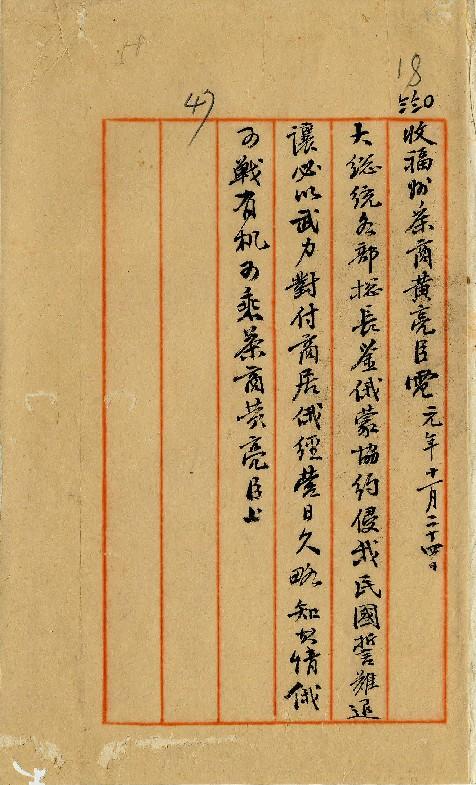 18
收福州茶商黃亮臣電 元年十一月二十四日
大總統各部總長鉴俄蒙協約侵我民國誓難退
讓必以武力對付商居俄經營日久略知其情俄
可戰有机可乘茶商黃亮臣上
47